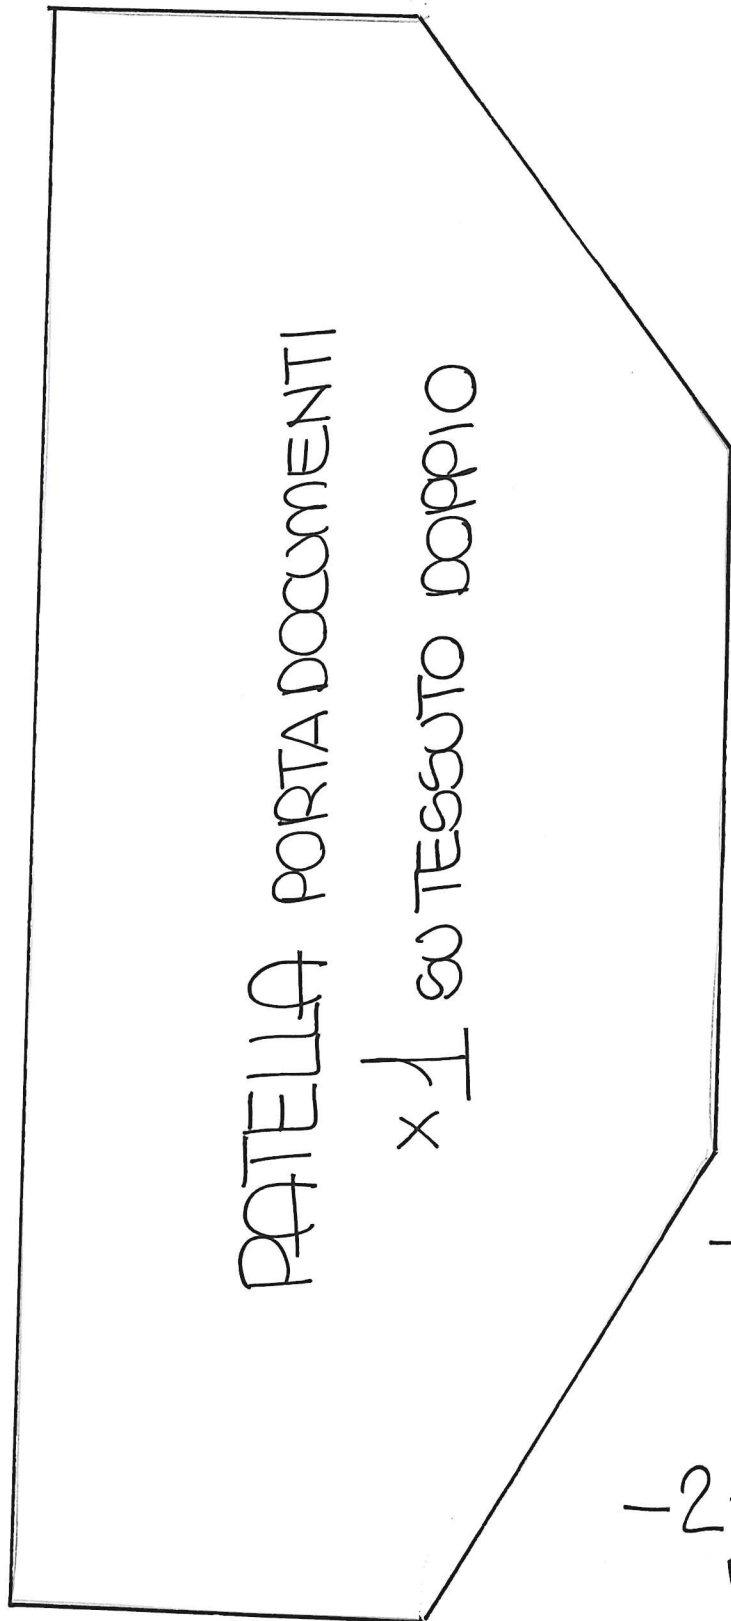 PATELLA PORTADOCUMENTI
x 1 SU TESSUTO DOPPIO
-2